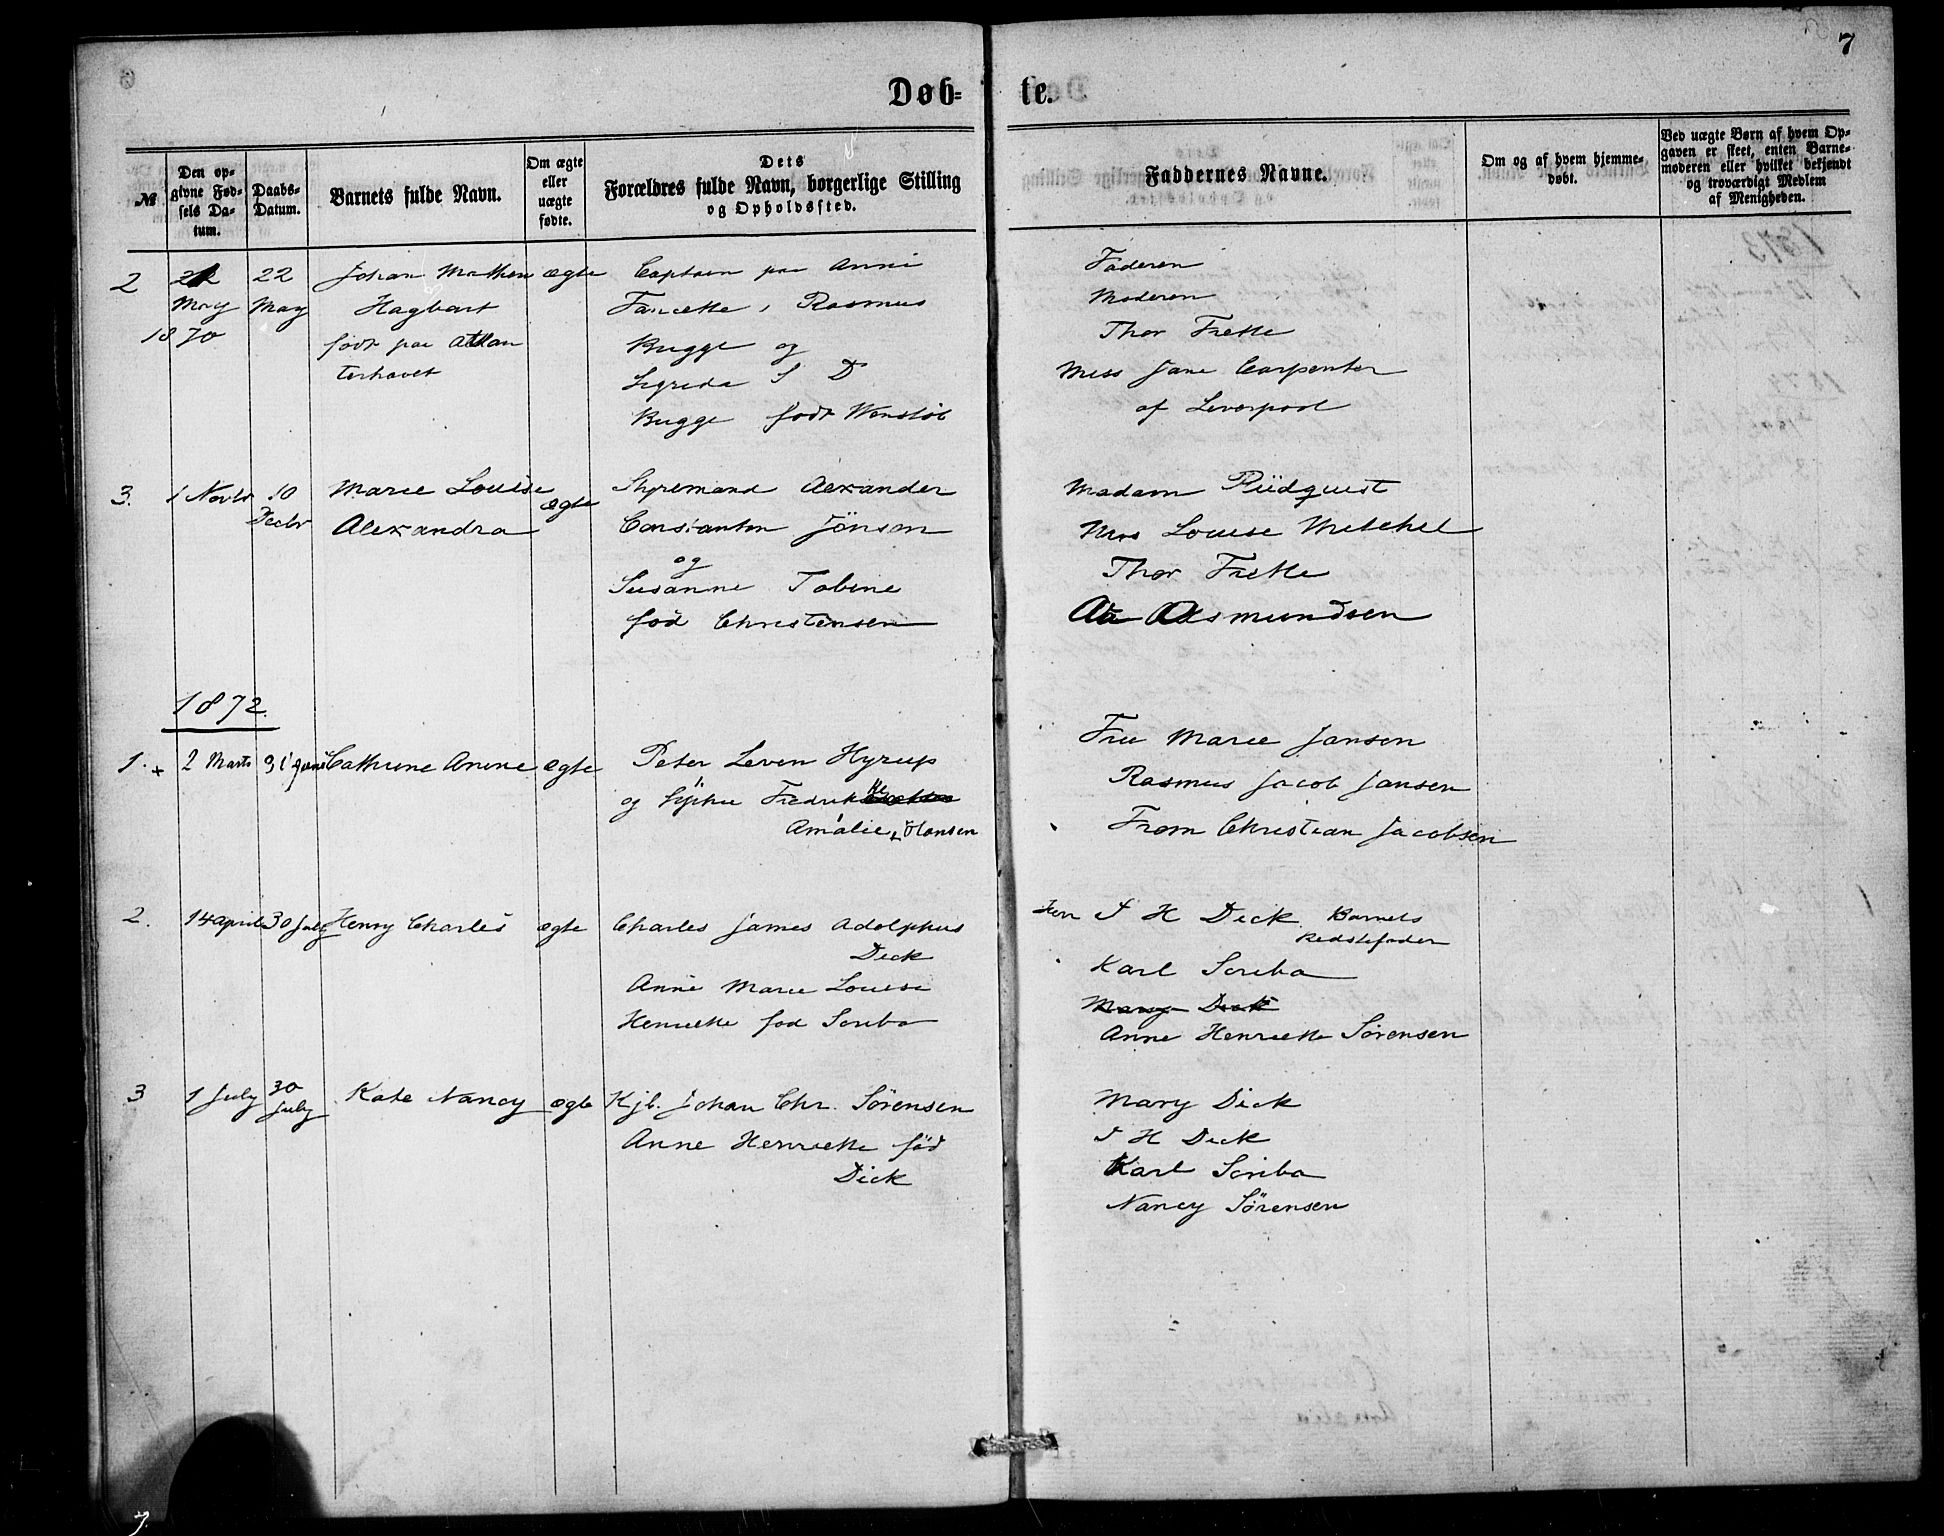 7
Døb- te.
№
Den op-
givne Fød-
sels Da-
tum.
Daabs-
Datum.
Barnets fulde Navn.
Om ægte
eller
uægte
fødte.
Dets
Forældres fulde Navn, borgerlige Stilling
og Opholdssted.
Faddernes Navne.
Om og af hvem hjemme-
døbt.
Ved uægte Børn af hvem Op-
gaven er skeet, enten Barne-
moderen eller hvilket bekjendt
og troværdigt Medlem
af Menigheden.
2
May
1870
22
May
Johan
Hagbart
født paa Atlan
terhavet
ægte
Captain paa Anni
Rasmus
Bugge og
S D
Bugge født
Faderen
Moderen
Thor Frette
Miss Jane Carpenter
af Liverpool
3.
1 Novbr
10
Decbr
Marie Louise
Alexandra
ægte
Styrmand Alexander
Constanton Jönsen
og
Susanne Tobine
fød Christensen
Madam
Mrs Louise Mitchel
Thor Frette
Aa Aasmundsen
1872.
1. +
2 Marts
Cathrine Anine
ægte
Peter Leven Hyrup
og Fredrikke
Amalie, Hansen
Fru Marie Jansen
Rasmus Jacob Jansen
From Christian Jacobsen
2.
14 April
30 July
Henry Charles
ægte
Charles James Adolphus
Dick
Anne Marie Louise
Henriette fød Scriba
Herr J H Dick Barnets
Bedstefader
Karl Scriba
Mary Dick
Anne Henriette Sørensen
3
1 July
30
July
Kate Nancy
ægte
Kjb. Johan Chr. Sørensen
Anne Henriette fød
Dick
Mary Dick
J H Dick
Karl Scriba
Nancy Sørensen
7.